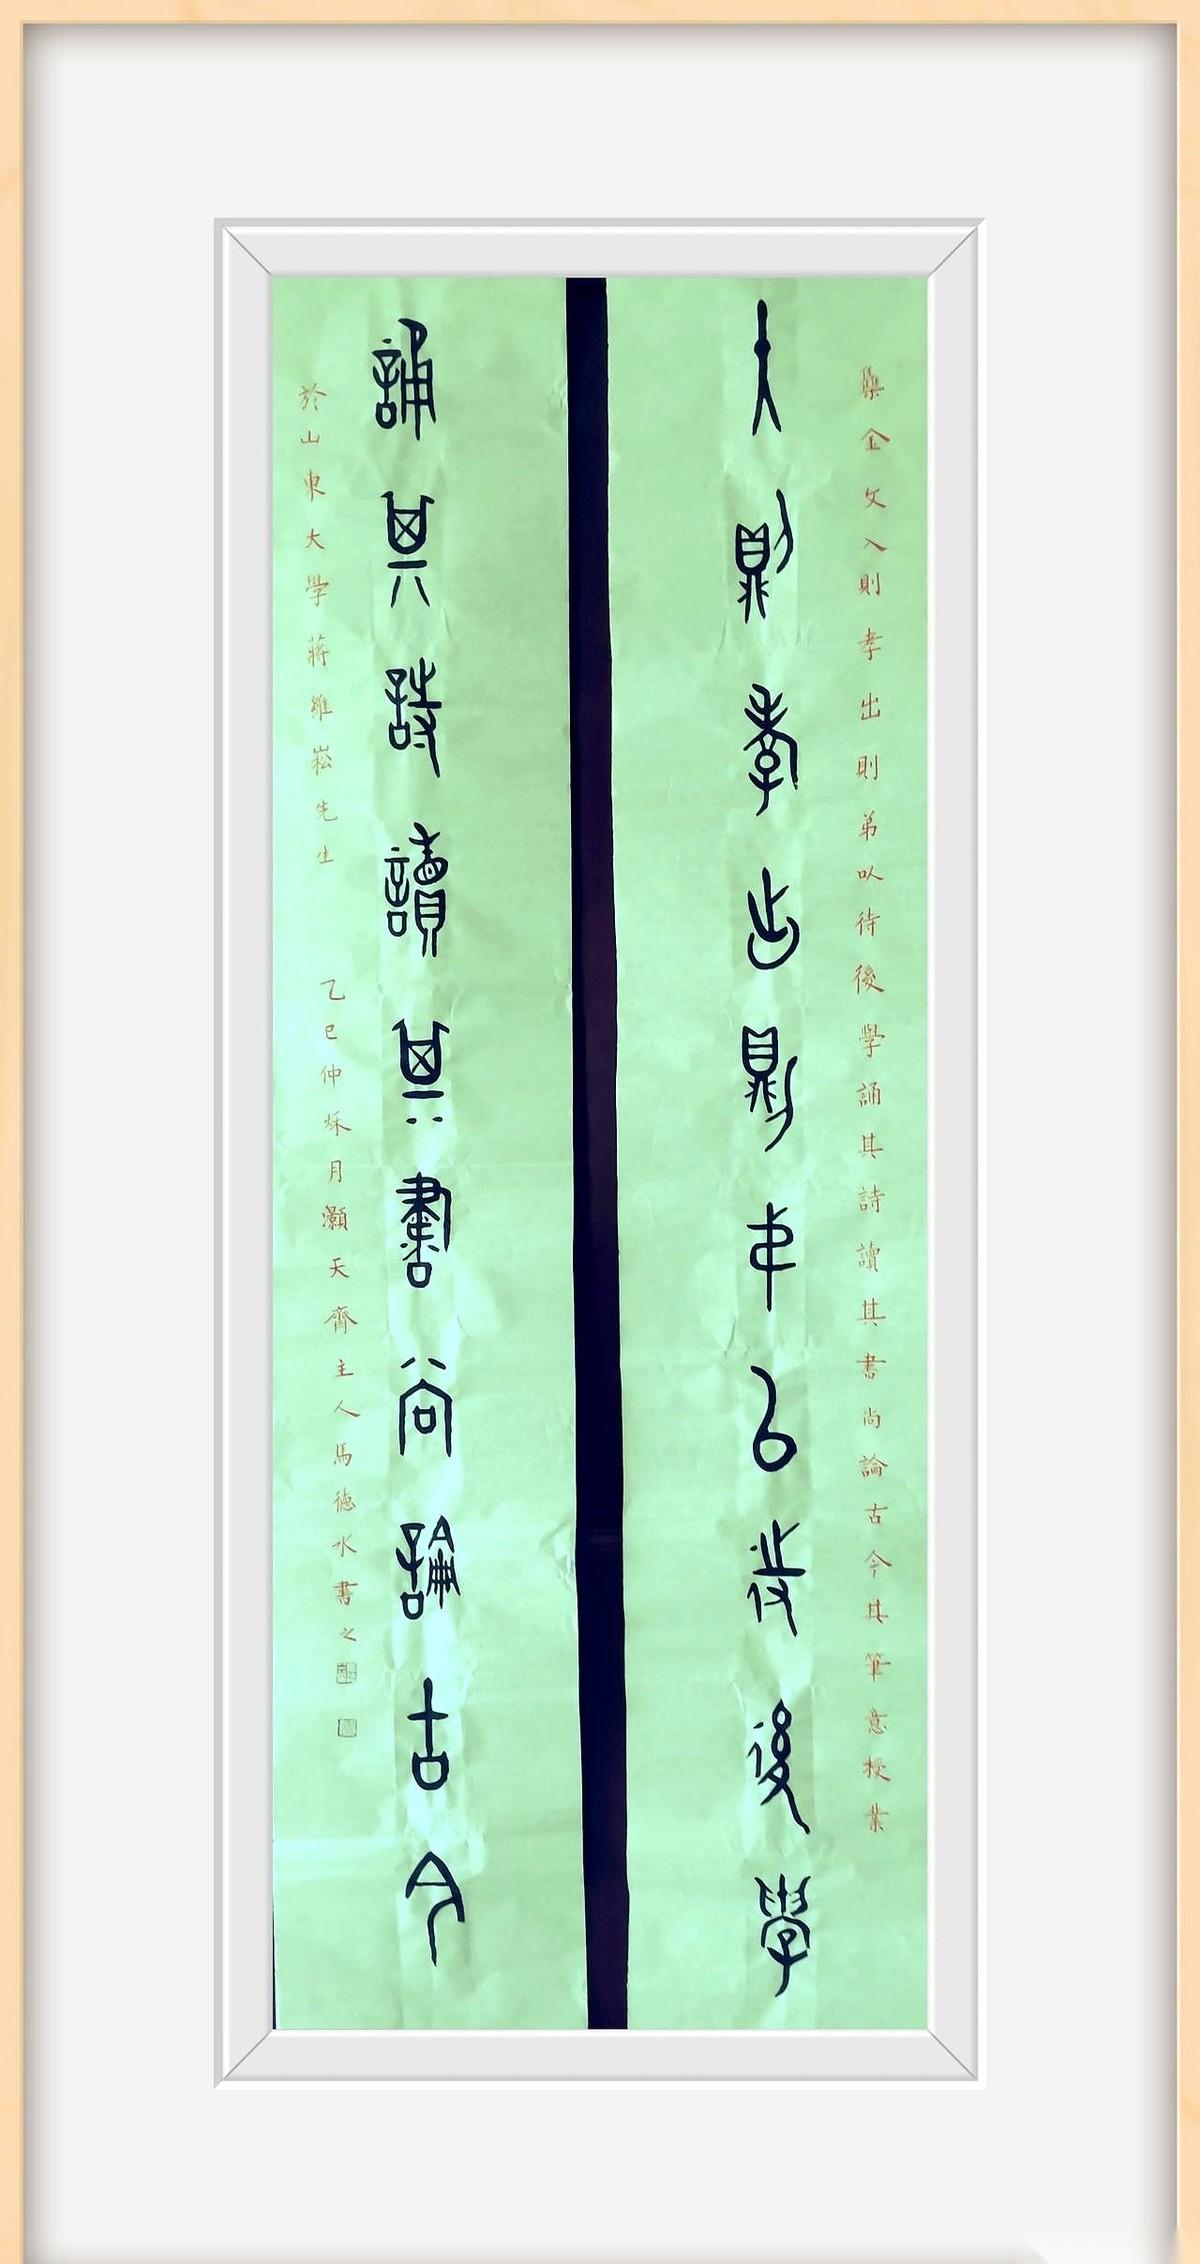 集金文入則孝出則弟以待後學誦其詩讀其書尚論古今其筆意授業
入則孝出則弟以待後學
誦其詩讀其書尚論古今
於山東大學蔣維崧先生
乙巳仲秌月灝天齊主人馬德水書之